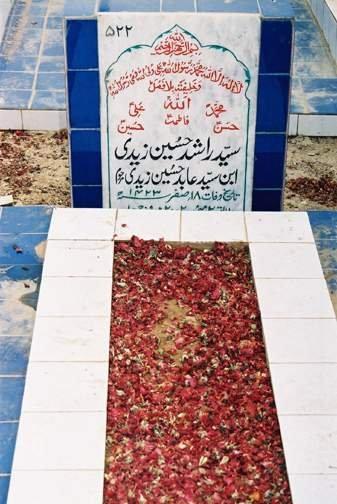 ۵۲۲
بسم اللہ الرحمن الرحیم
لا الہ الا اللہ محمد رسول اللہ علی ولی اللہ وصی رسول اللہ
و خلیفتہ بلا فصل
محمد اللہ علی
حسن فاطمہ حسین
سید راشد حسین زیدی
ابن سید عابد حسین زیدی مرحوم
تاریخ وفات ۱۸ صفر ۱۴۲۳ھ